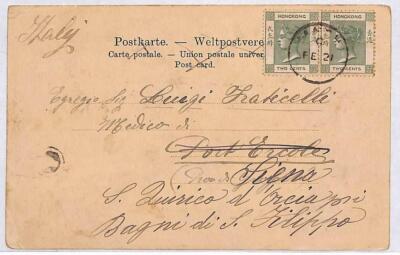 Italy
Postkarte. — Weltpostvere
Carte postale. — Union postale univer
Post card.
HONGKONG HONGKONG
TWO CENTS TWO CENTS
C
FE 21
Egregio Sig Luigi Fraticelli
Medico di
Port Ercole
Siena
S. Quirico d'Orcia per
Bagni di S. Filippo